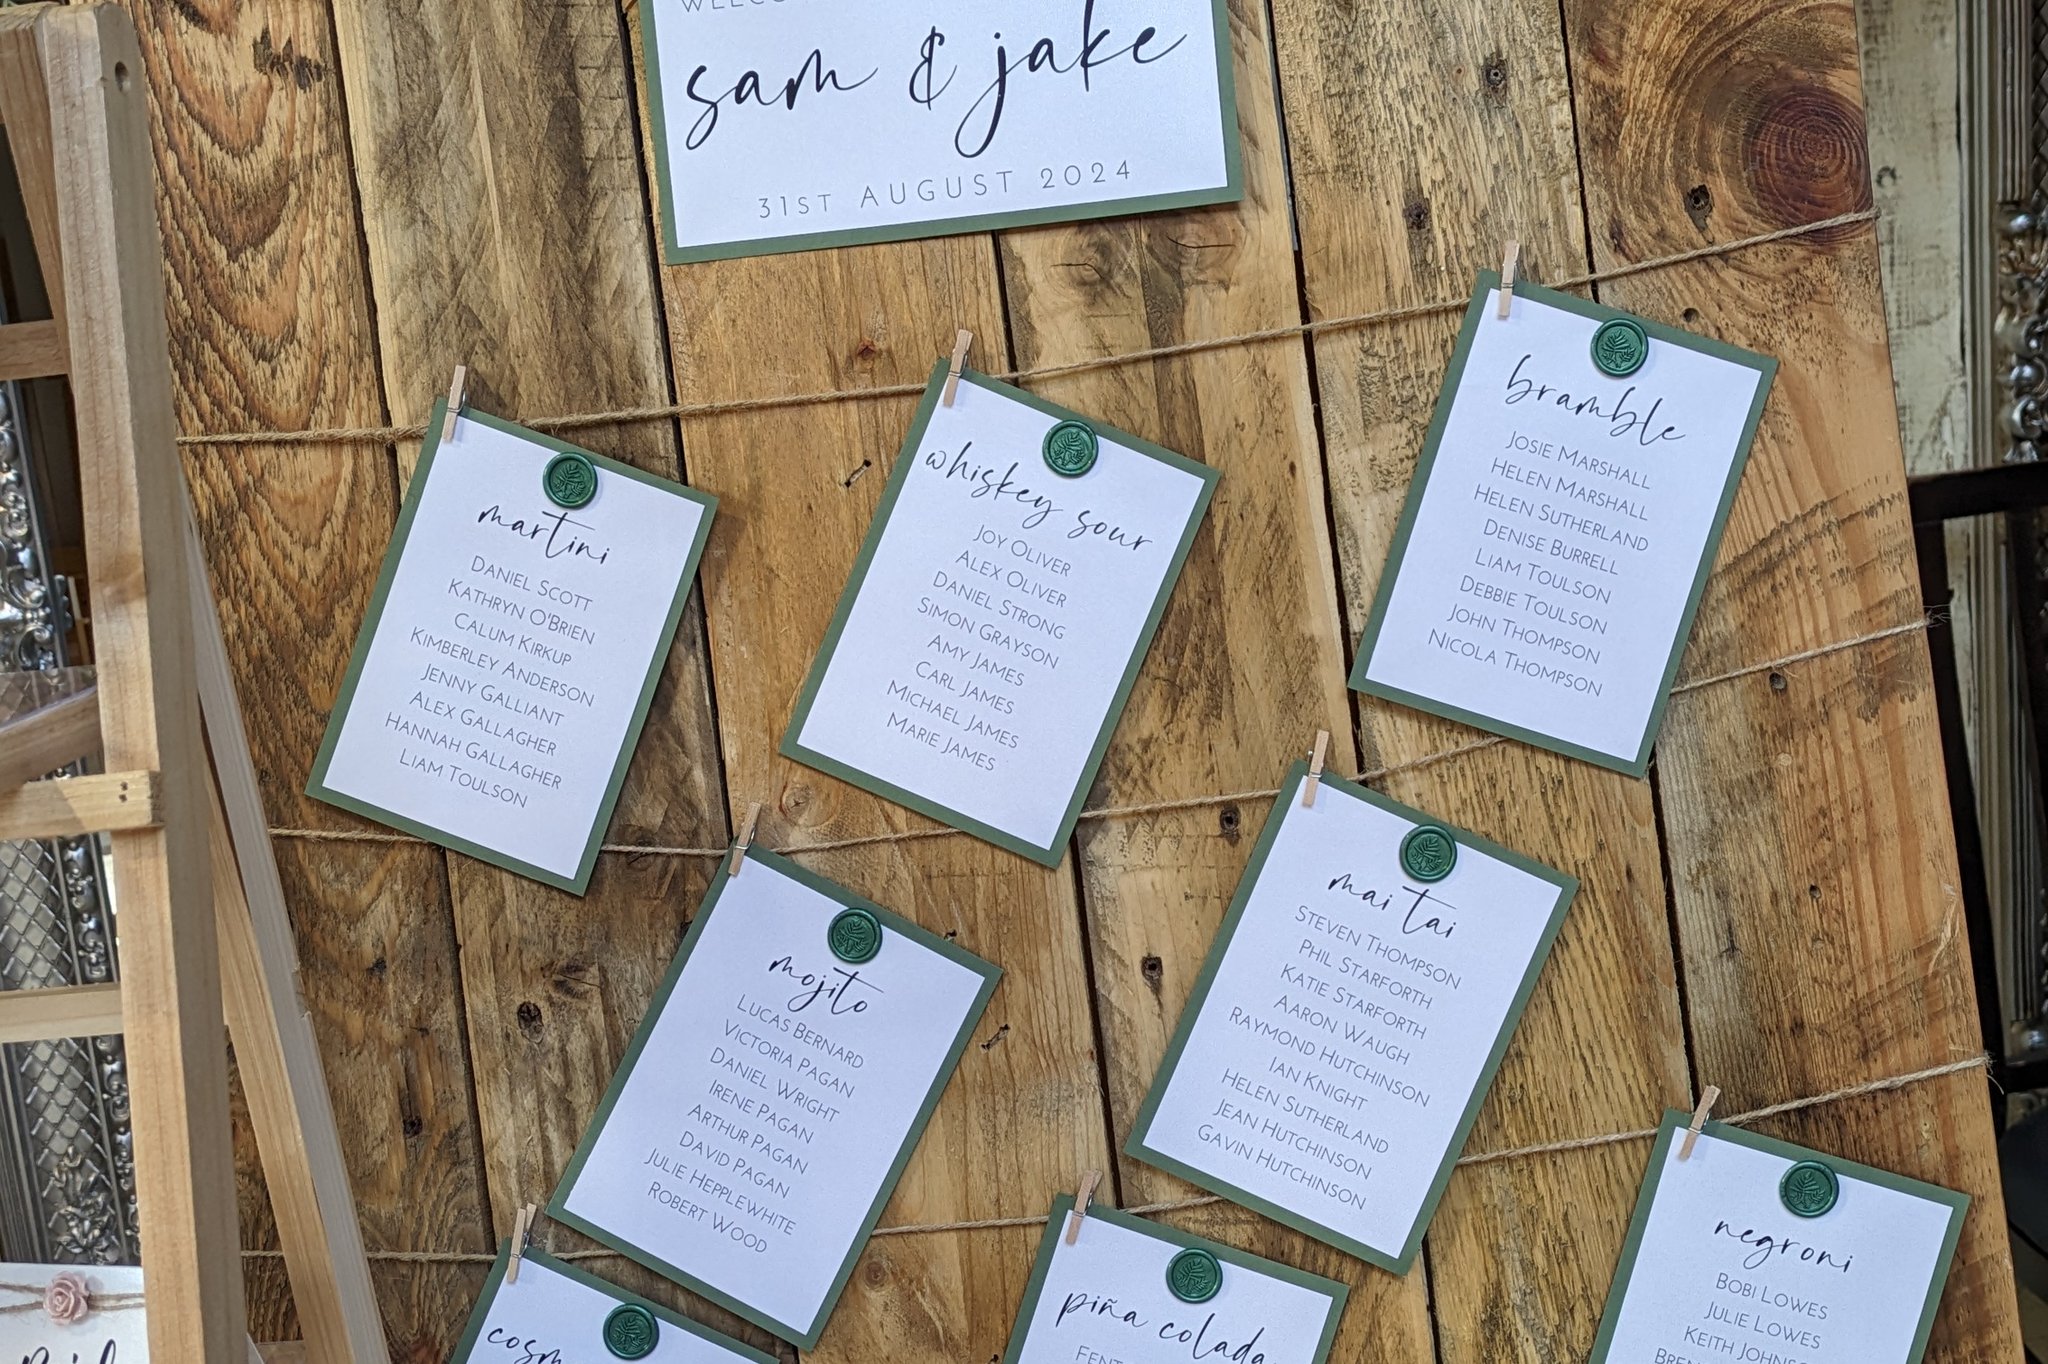 sam & jake
31ST AUGUST 2024
martini
DANIEL SCOTT
KATHRYN O'BRIEN
CALUM KIRKUP
KIMBERLEY ANDERSON
JENNY GALLIANT
ALEX GALLAGHER
HANNAH GALLAGHER
LIAM TOULSON
whiskey sour
JOY OLIVER
ALEX OLIVER
DANIEL STRONG
SIMON GRAYSON
AMY JAMES
CARL JAMES
MICHAEL JAMES
MARIE JAMES
bramble
JOSIE MARSHALL
HELEN MARSHALL
HELEN SUTHERLAND
DENISE BURRELL
LIAM TOULSON
DEBBIE TOULSON
JOHN THOMPSON
NICOLA THOMPSON
mojito
LUCAS BERNARD
VICTORIA PAGAN
DANIEL WRIGHT
IRENE PAGAN
ARTHUR PAGAN
DAVID PAGAN
JULIE HEPPLEWHITE
ROBERT WOOD
mai tai
STEVEN THOMPSON
PHIL STARFORTH
KATIE STARFORTH
AARON WAUGH
RAYMOND HUTCHINSON
IAN KNIGHT
HELEN SUTHERLAND
JEAN HUTCHINSON
GAVIN HUTCHINSON
piña colada
negroni
BOBI LOWES
JULIE LOWES
KEITH